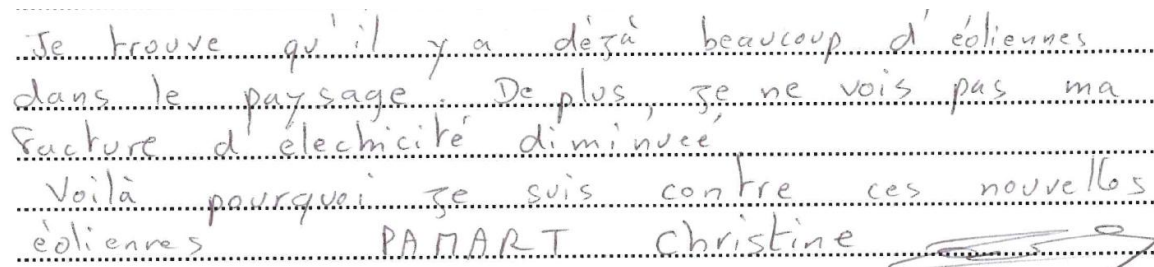 Je trouve qu'il y a déjà beaucoup d'éoliennes
dans le paysage. De plus, je ne vois pas ma
facture d'électricité diminuée
Voilà pourquoi je suis contre ces nouvelles
éoliennes PAMART Christine